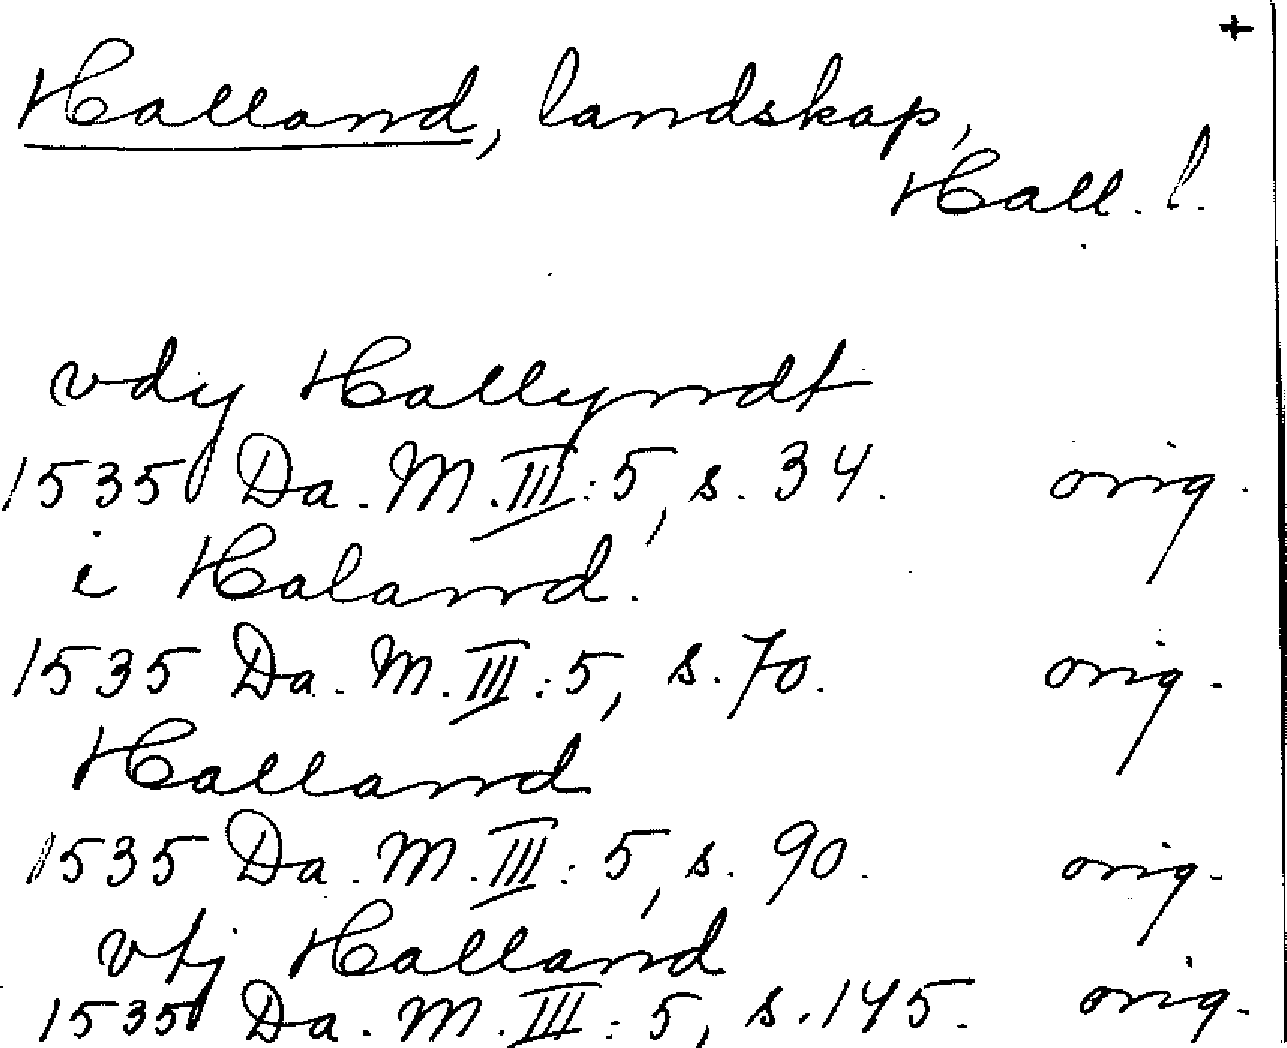 +
Halland, landskap,
Hall. l.
vdy Hallyndt
1535 Da. M. III: 5, s. 34. orig.
i Haland.
1535 Da. M. III: 5, s. 70. orig.
Halland
1535 Da. M. III: 5, s. 90. orig.
vtj Halland
1535 Da. M. III: 5, s. 145. orig.